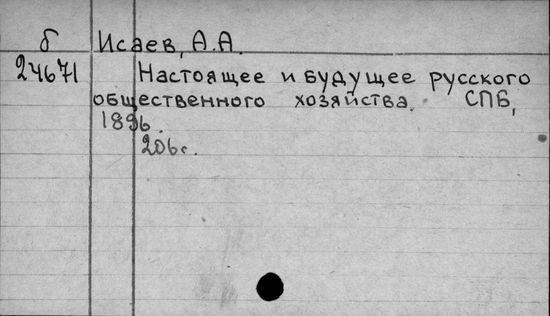 б Исаев, А.А.
24671 Настоящее и будущее русского
общественного хозяйства. СПБ,
1896.
206с.